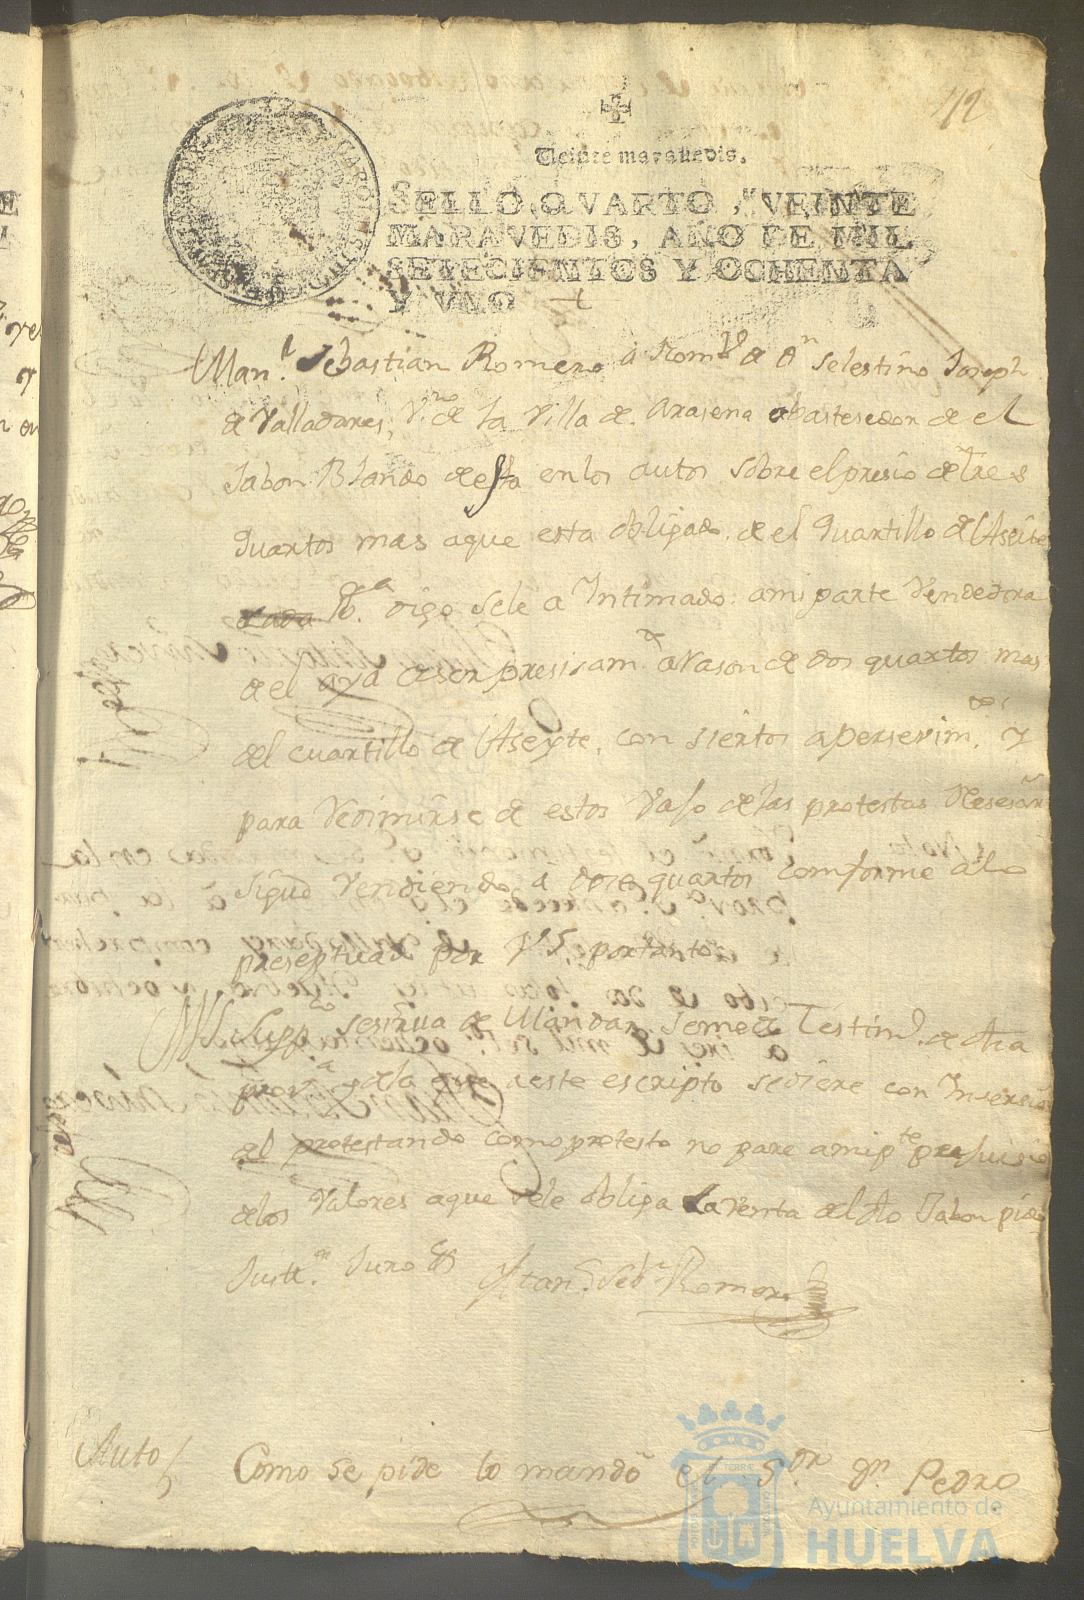 42
Veinte maravedis.
SELLO QVARTO, VEINTE
MARAVEDIS, AÑO DE MIL
SETECIENTOS Y OCHENTA
Y VNO
Man.l Sebastian Romero a Nombre de Dn Selestino Joseph
de Valladares, V.no de la Villa de Arasena abastesedor de el
Jabon Blando de esta en los autos sobre el presio de tres
quartos mas aque esta obligado de el quartillo de Aseite
lb.a digo sele a Intimado amiparte Vendedora
de el aser presisam.te a rason de dos quartos mas
del cuartillo de Aseyte, con siertos aperserim.tos y
para Redimirse de estos Vajo de las protestas Nesesar
sigue vendiendo a dose quartos comforme alo
preseptuado por VS. portanto
A VS. Supp.co sesirva de Mandar seme de Testim.o de dha
prov.a y dela que aeste escripto sediere con Insersion
del protestando como protesto no pare amip.te prejuisio
delos Valores aque sele obliga la venta del dho Jabon pido
Just.a Juro &
Man.l Seb.n Romero
Auto
Como se pide lo mandó el S.or Dn. Pedro
Ayuntamiento de
HUELVA